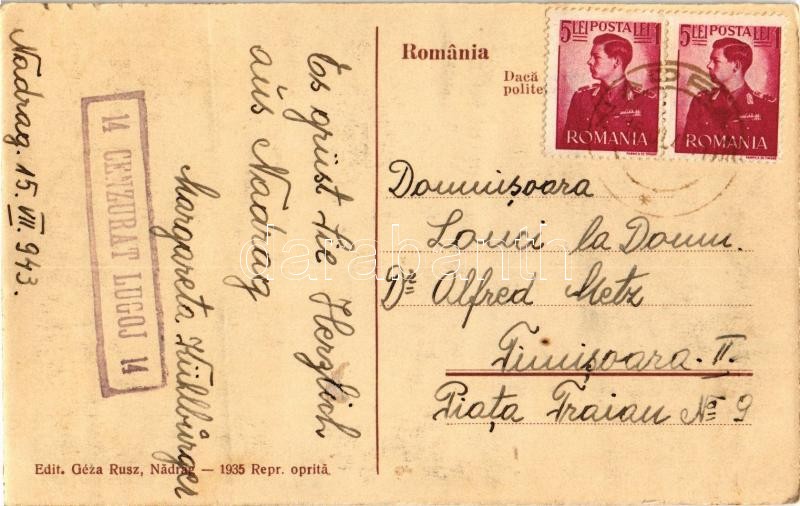 Nădrag. 15. VII. 943.
14 CENZURAT LUGOJ 14
Es grüst Sie Herzlich
aus Nădrag
Margareta Kühlbürger
Edit. Géza Rusz, Nădrag — 1935 Repr. oprită
România
Dacă
polite
5 LEI POSTA LEI
ROMANIA
5 LEI POSTA LEI
ROMANIA
Domnişoara
Lonci la Domn.
Dr Alfred Metz
Timişoara. II.
Piaţa Traian No 9
darabanth